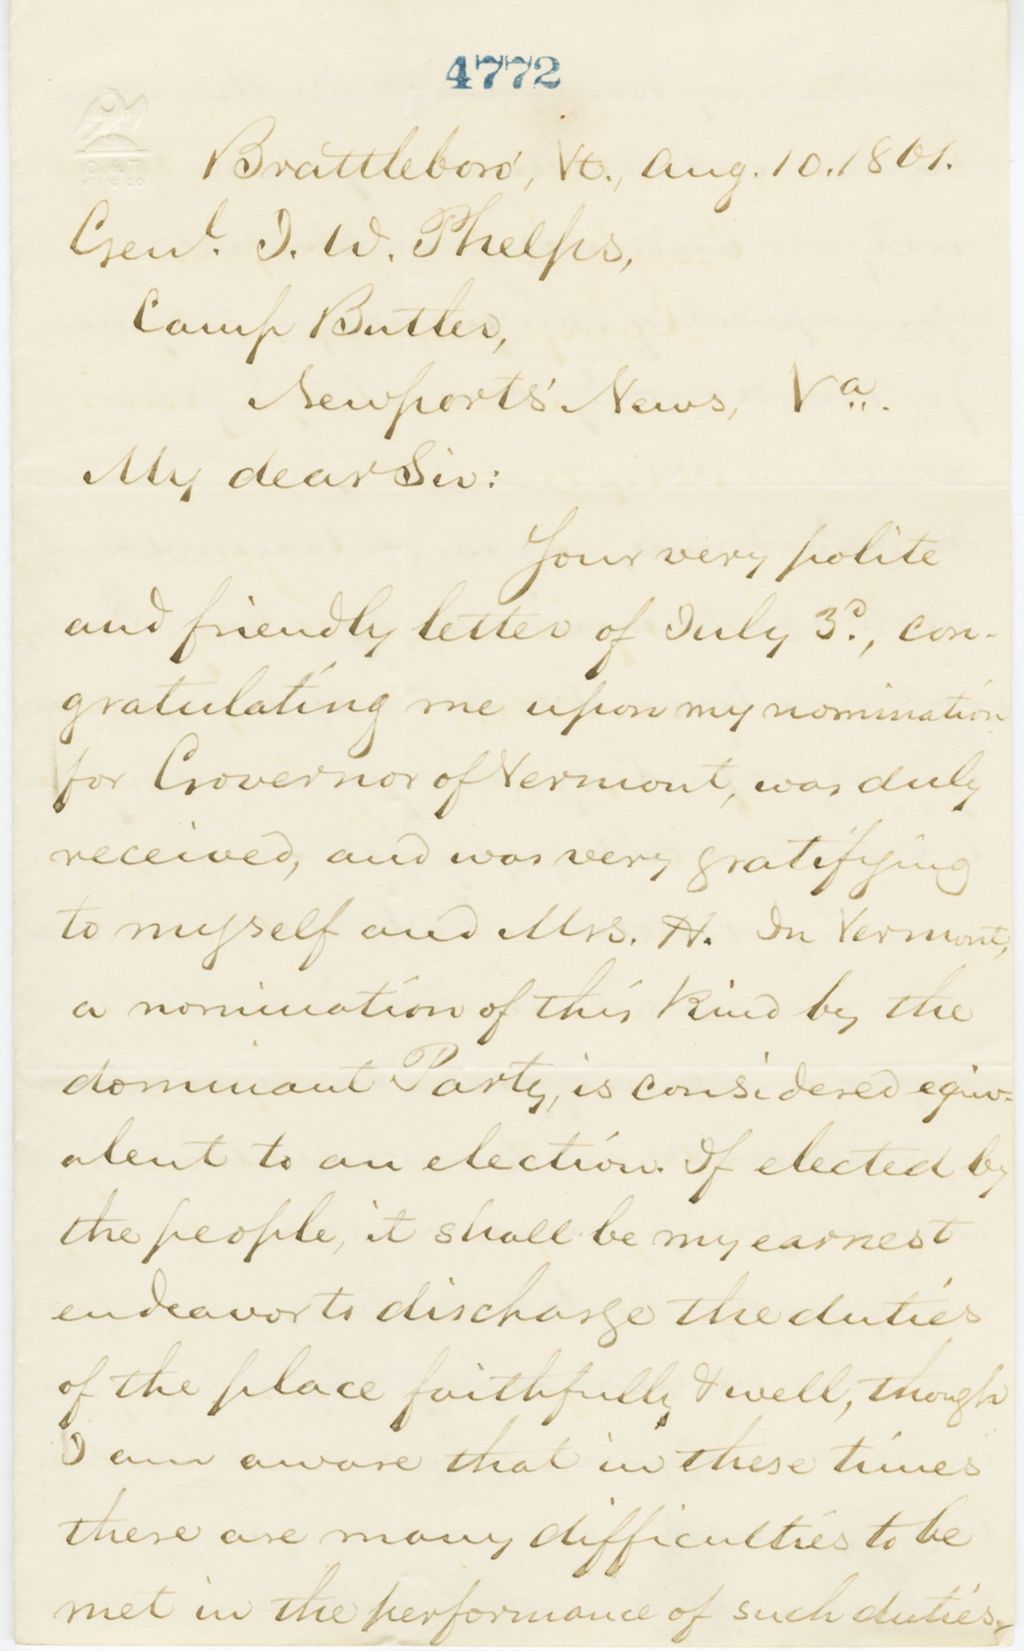 4772
Brattleboro', Vt., Aug. 10. 1861.
Genl. J. W. Phelps,
Camp Butler,
Newports' News, Va.
My dear Sir:
Your very polite
and friendly letter of July 3d., con-
gratulating me upon my nomination
for Governor of Vermont, was duly
received, and was very gratifying
to myself and Mrs. H. In Vermont,
a nomination of this kind by the
dominant Party, is considered equiv=
alent to an election. If elected by
the people, it shall be my earnest
endeavor to discharge the duties
of the place faithfully & well, though
I am aware that in these times
there are many difficulties to be
met in the performance of such duties,